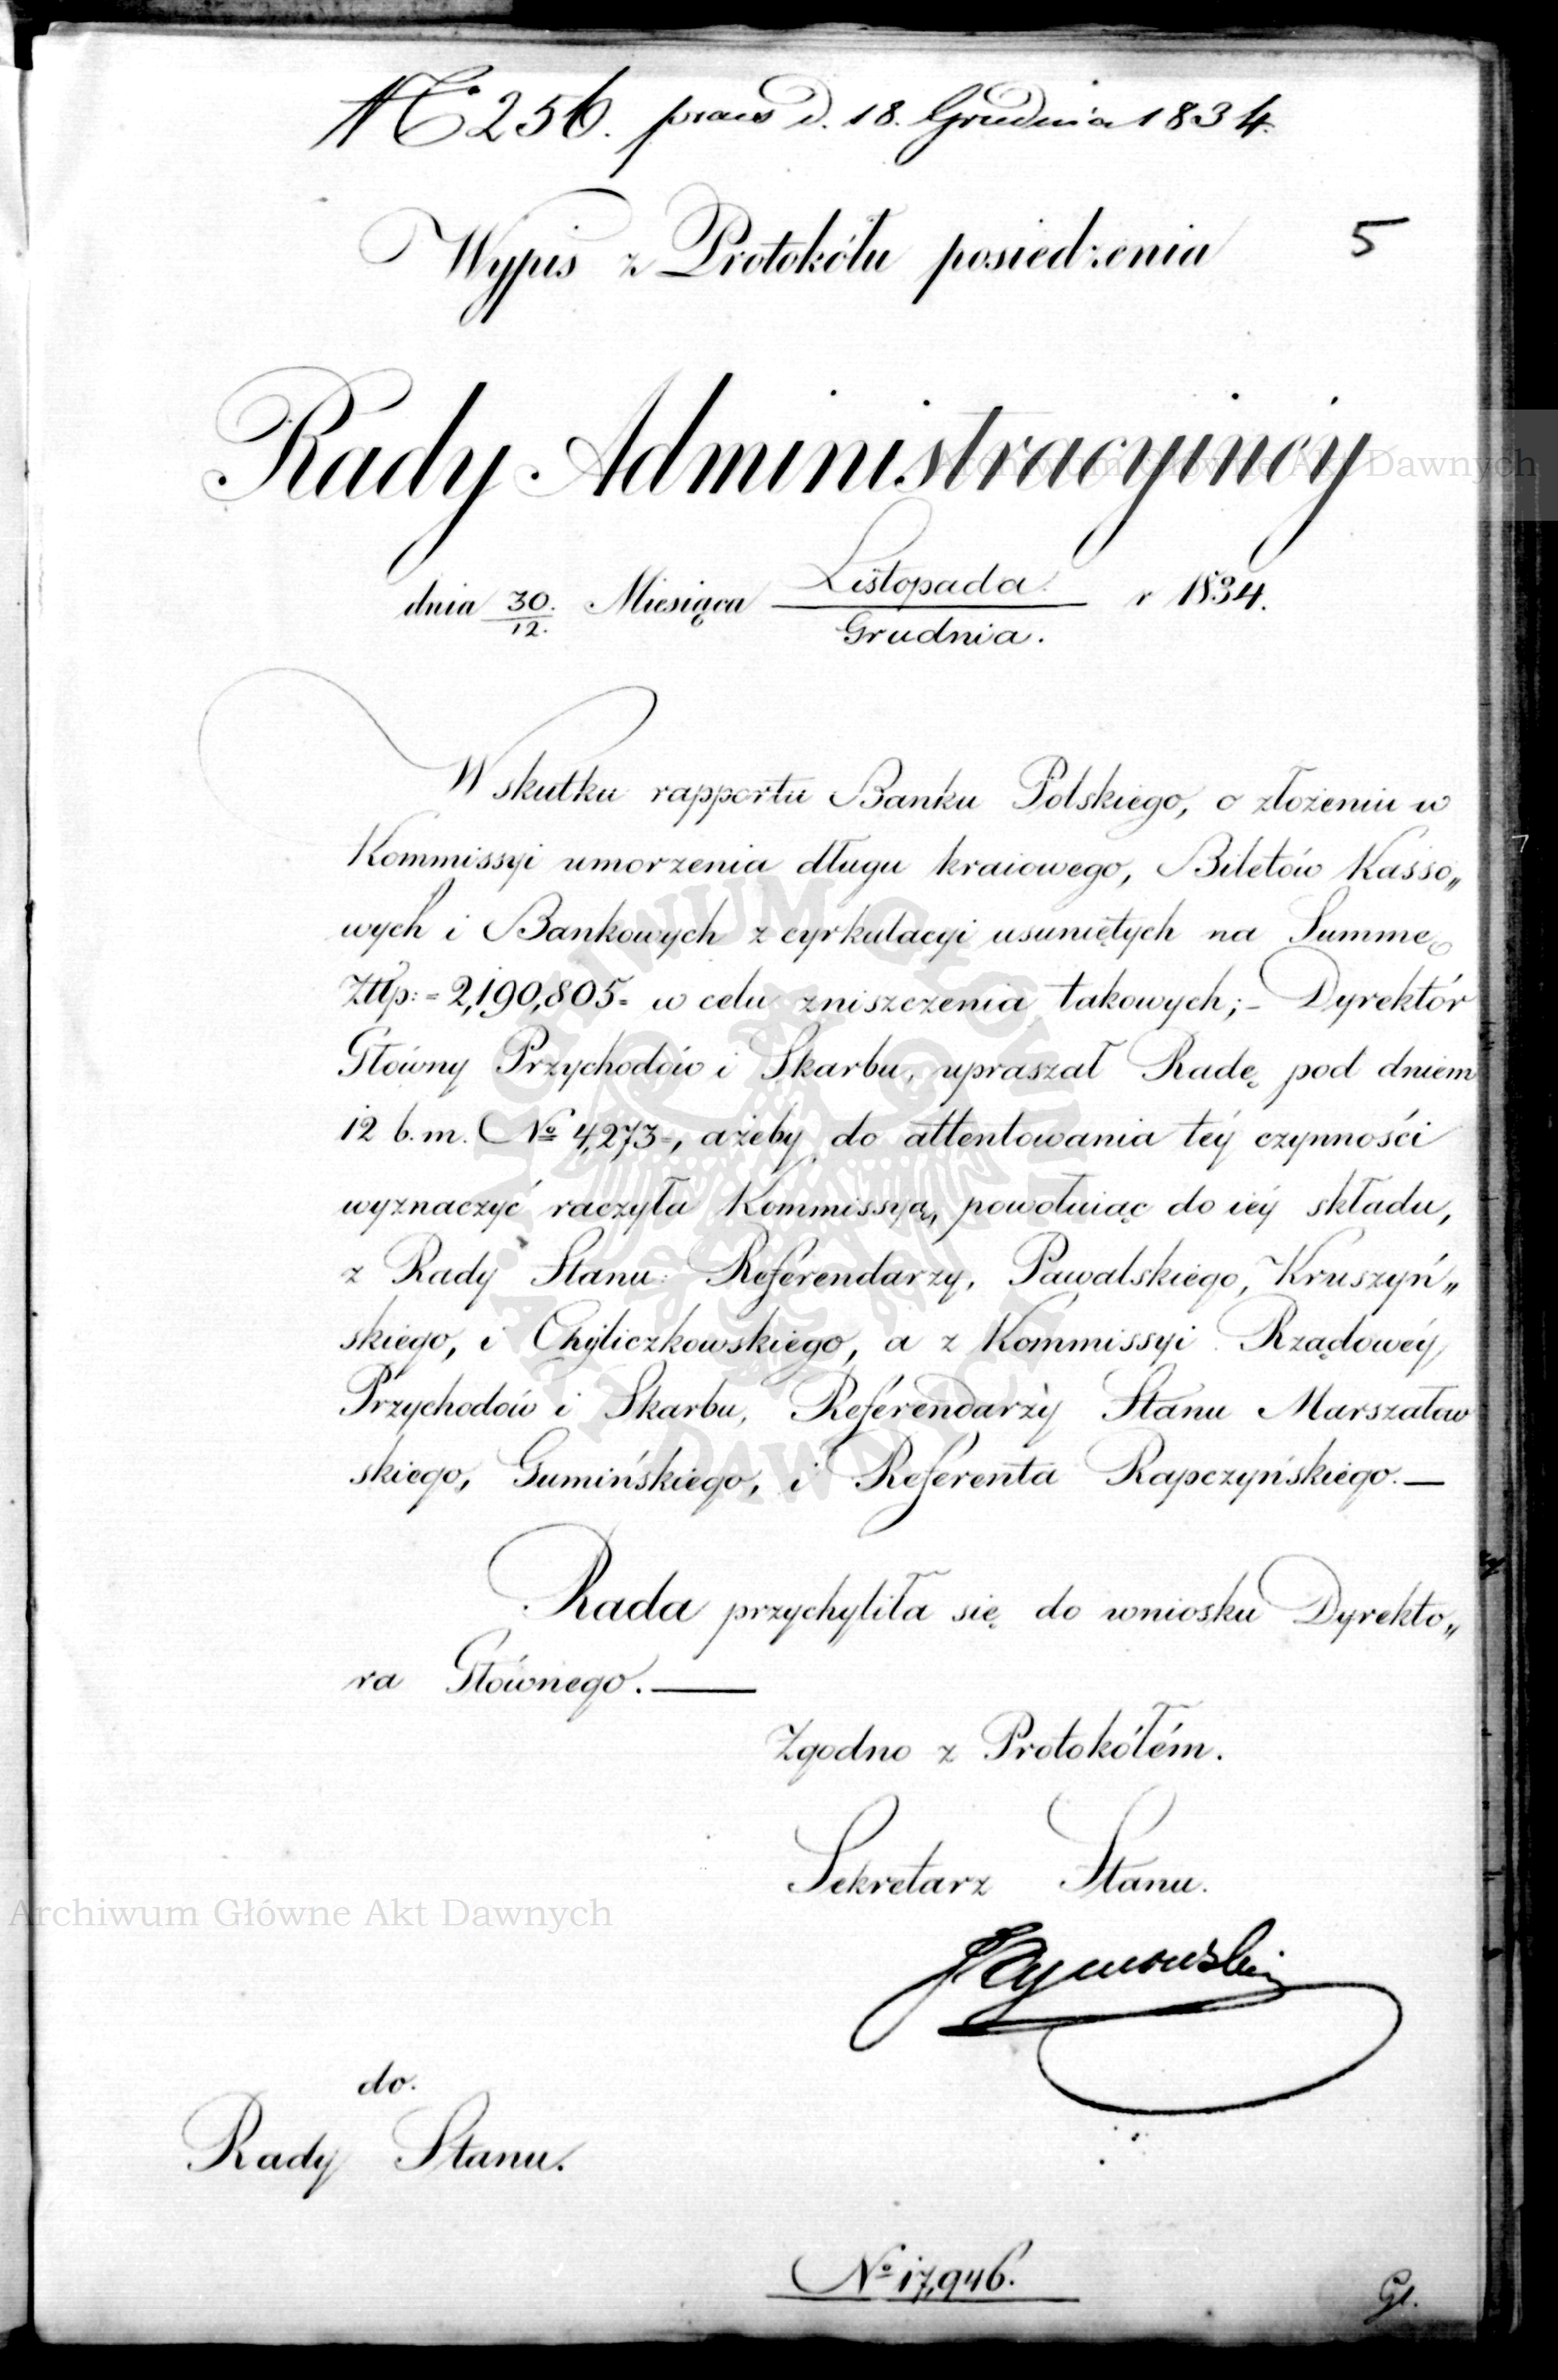 № 256. praes d. 18. Grudnia 1834.
Wypis z Protokółu posiedzenia
5
Rady Administracyinéy
dnia 30/12. Miesiąca Listopada/Grudnia. r 1834.
W skutku rapportu Banku Polskiego, o złożeniu w
Kommissyi umorzenia długu kraiowego, Biletów Kasso„
wych i Bankowych z cyrkulacyi usuniętych na Summę
Złłp: = 2,190,805= w celu zniszczenia takowych;- Dyrektór
Główny Przychodów i Skarbu, upraszał Radę pod dniem
12 b. m. № 4,273=, ażeby do attentowania téy czynności
wyznaczyć raczyła Kommissyą, powołuiąc do iéy składu,
z Rady Stanu: Referendarzy, Pawalskiego, Kruszyń„
skiego, i Chyliczkowskiego, a z Kommissyi Rządowéy
Przychodów i Skarbu, Referendarzy Stanu Marszałow
skiego, Gumińskiego, i Referenta Rapczyńskiego. —
Rada przychyliła się do wniosku Dyrekto„
ra Głównego. —
Zgodno z Protokółém.
Sekretarz Stanu.
JTymowski
do.
Rady Stanu.
№ 17,946.
Gl.
Archiwum Główne Akt Dawnych
Archiwum Główne Akt Dawnych
ARCHIWUM GŁÓWNE AKT DAWNYCH